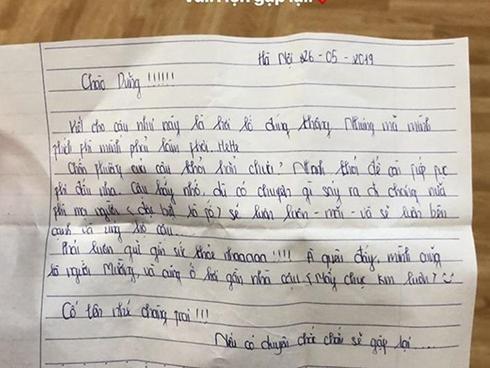 Hà Nội 26-05-2019
Chào Dũng !!!!!!
Viết cho cậu như này là hơi lố đúng không. Nhưng mà mình
thích thì mình phải làm thôi. Hehe
Chân phường của cậu khỏi hơi chưa? Nhanh khỏi để còn tiếp tục
thi đấu nha. Cậu hãy nhớ, dù có chuyện gì xảy ra đi chăng nữa
thì mọi người (đặc biệt là tớ) sẽ luôn luôn - mãi - và sẽ luôn bên
cạnh và ủng hộ cậu.
Phải luôn giữ gìn sức khỏe nhaaaaa !!!! À quên đấy, mình cũng
là người Mường và cũng ở hơi gần nhà cậu (mấy chục km luôn)
Cố lên nhé chàng trai !!!
Nếu có duyên chắc chắn sẽ gặp lại ......